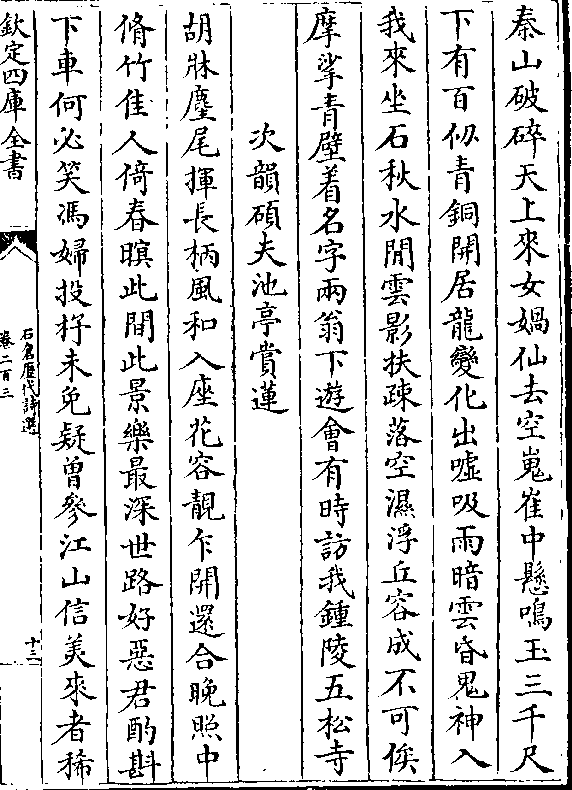 秦山破碎天上來女媧仙去空嵬崔中懸鳴玉三千尺
下有百仭青銅開居龍變化出嘘吸雨暗雲昏鬼神入
我來坐石秋水間雲影扶疎落空濕浮丘容成不可俟
摩挲青壁着名字兩翁下遊會有時訪我鍾陵五松寺
次韻碩夫池亭賞蓮
胡牀麈尾揮長柄風和入座花容靚乍開還合晚照中
脩竹佳人倚春暝此間此景樂最深世路好惡君酌斟
下車何必笑馮婦投杼未免疑曾參江山信美來者稀
欽定四庫全書
石倉歷代詩選
卷二百三
十三